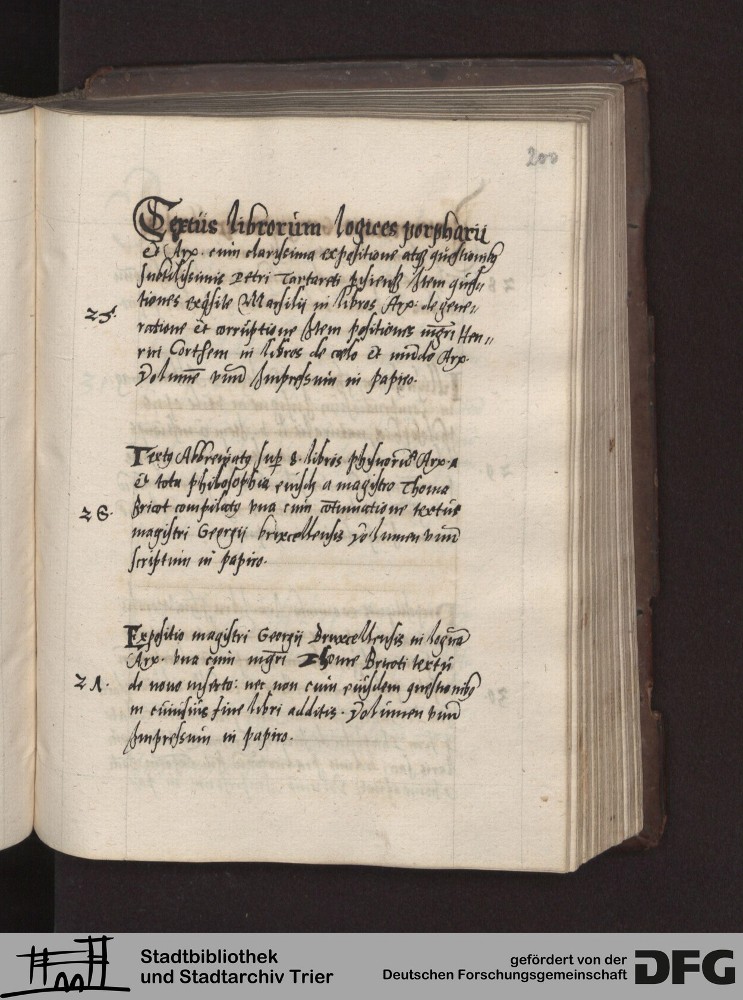 200
Textus librorum logices porpharii
Et Arp. cum clarissima expositione atq questionibus
subtilissimis Petri Tartareti parisiensis Item ques„
tiones exqsite Marsilii in libros Arp: de gene„
25.
ratione et corruptione Item positiones mgri Hen„
rici Gorchem in libros de celo et mundo Arp.
Volumē unū Impressum in papiro.
Textq Abbreviatq sup 8. libros phisicorū Arp.
et tota philosophia eiusdē a magistro Thoma
26.
Bricot compilatq una cum cōtinuatione textus
magistri Georgii bruxcellensis Volumen unū
scriptum in papiro.
Expositio magistri Georgii Bruxcellensis in logicā
Arp. una cum mgri Thome Bricoti textu
21.
de novo inserto: nec non cum eiusdem questionibq
in cuiusvis fine libri additis. Volumen unū
Impressum in papiro.
Stadtbibliothek
und Stadtarchiv Trier
gefördert von der
Deutschen Forschungsgemeinschaft
DFG